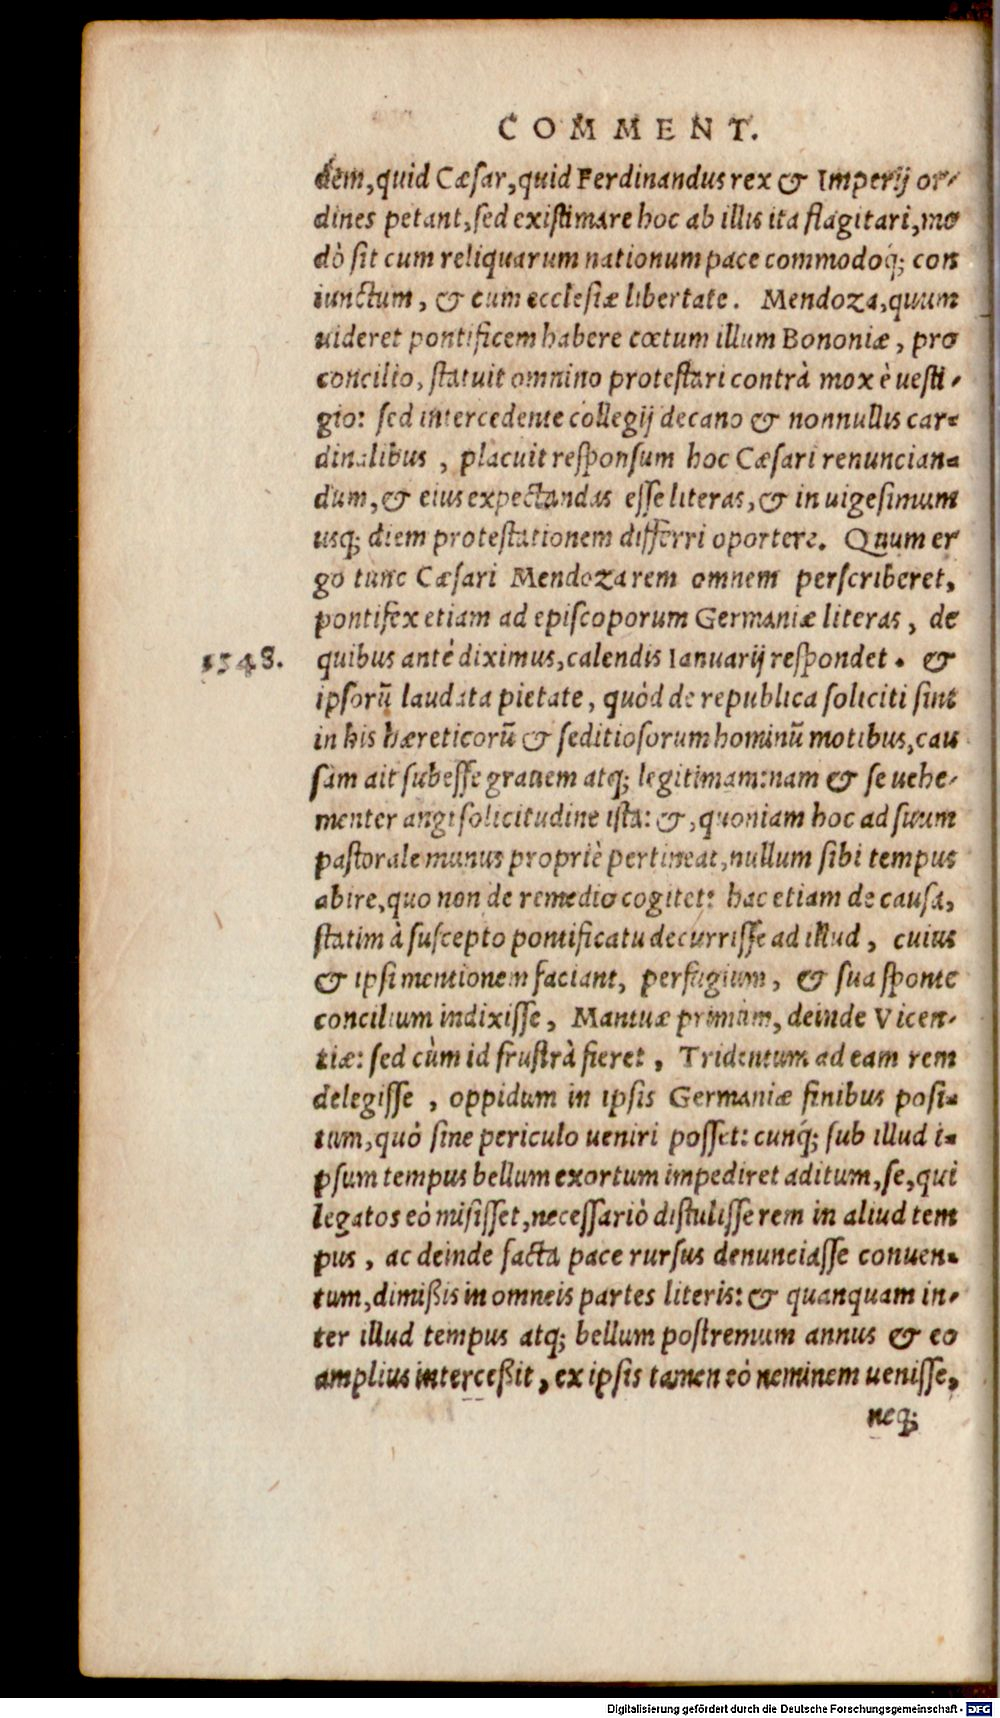 COMMENT.
dem, quid Cæsar, quid Ferdinandus rex & Imperij or-
dines petant, sed existimare hoc ab illis ita flagitari, mo
dò sit cum reliquarum nationum pace commodoq́; con
iunctum, & cum ecclesiæ libertate. Mendoza, quum
uideret pontificem habere cœtum illum Bononiæ, pro
concilio, statuit omnino protestari contrà mox è uesti-
gio: sed intercedente collegij decano & nonnullis car-
dinalibus, placuit responsum hoc Cæsari renuncian-
dum, & eius expectandas esse literas, & in uigesimum
usq; diem protestationem differri oportere. Quum er
go tunc Cæsari Mendoza rem omnem perscriberet,
pontifex etiam ad episcoporum Germaniæ literas, de
1548. quibus antè diximus, calendis Ianuarij respondet. &
ipsorũ laudata pietate, quòd de republica soliciti sint
in his hæreticorũ & seditiosorum hominũ motibus, cau
sam ait subesse grauem atq; legitimam: nam & se uehe-
menter angi solicitudine ista: &, quoniam hoc ad suum
pastorale munus propriè pertineat, nullum sibi tempus
abire, quo non de remedio cogitet: hac etiam de causa,
statim à suscepto pontificatu decurrisse ad illud, cuius
& ipsi mentionem faciant, perfugium, & sua sponte
concilium indixisse, Mantuæ primùm, deinde Vicen-
tiæ: sed cùm id frustrà fieret, Tridentum ad eam rem
delegisse, oppidum in ipsis Germaniæ finibus posi-
tum, quò sine periculo ueniri posset: cunq́; sub illud i-
psum tempus bellum exortum impediret aditum, se, qui
legatos eò misisset, necessariò distulisse rem in aliud tem
pus, ac deinde facta pace rursus denunciasse conuen-
tum, dimißis in omneis partes literis: & quanquam in-
ter illud tempus atq; bellum postremum annus & eo
amplius interceßit, ex ipsis tamen eò neminem uenisse,
neq;
Digitalisierung gefördert durch die Deutsche Forschungsgemeinschaft - DFG